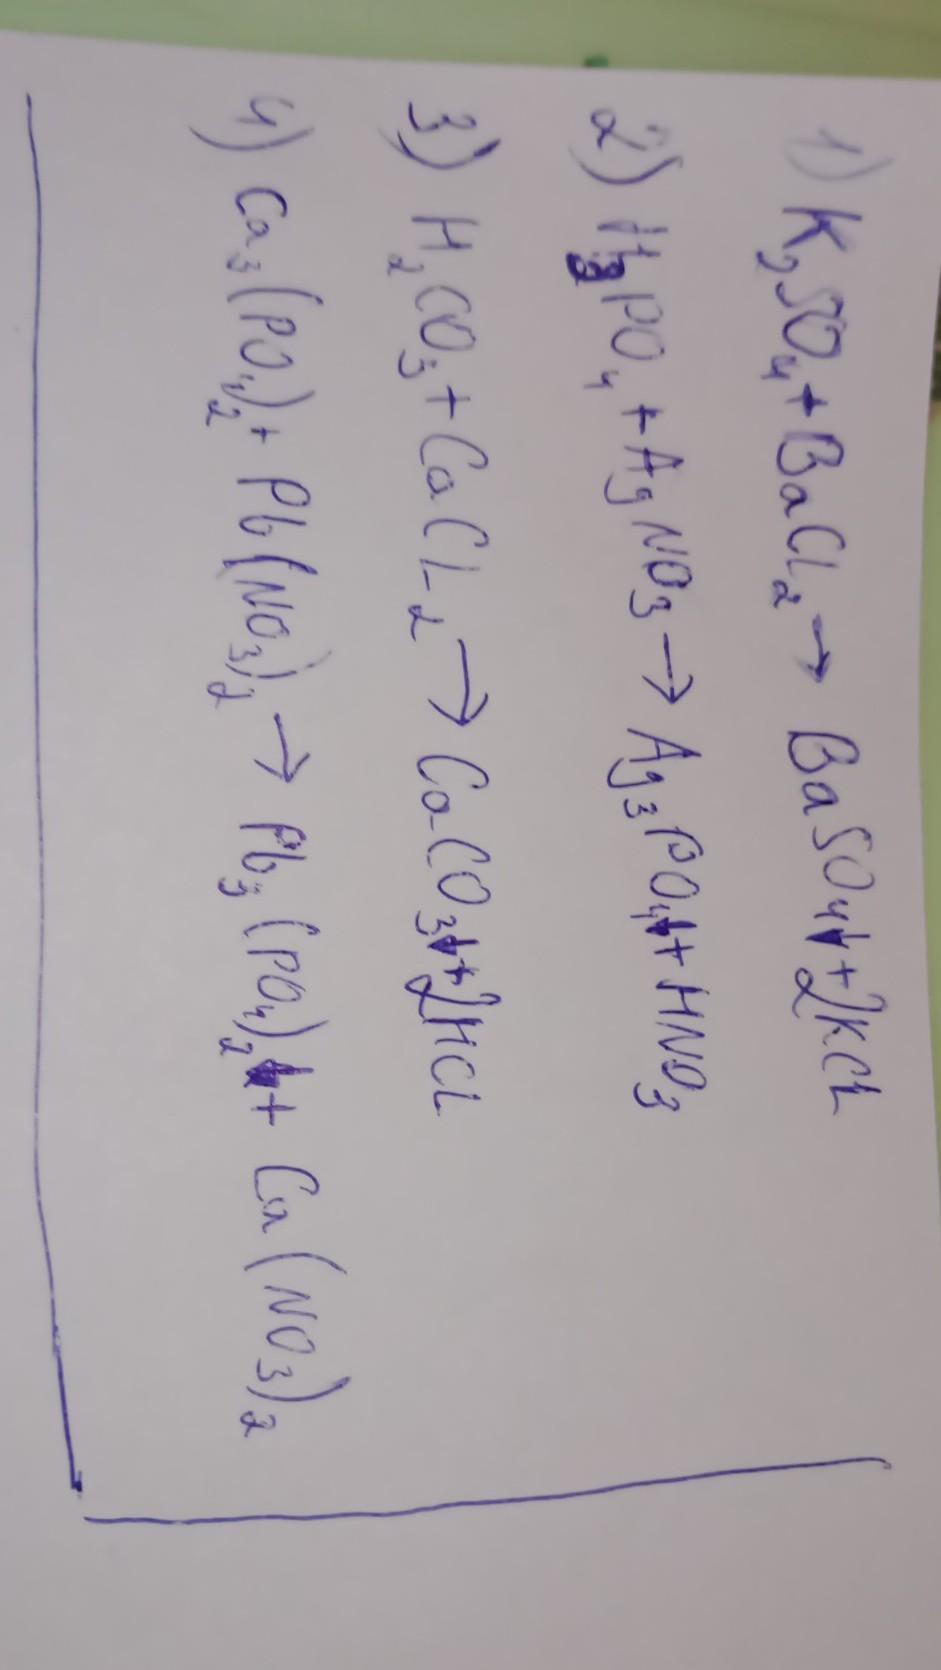 1) K₂SO₄ + BaCl₂ → BaSO₄↓ + 2KCl
2) H₃PO₄ + AgNO₃ → Ag₃PO₄↓ + HNO₃
3) H₂CO₃ + CaCl₂ → CaCO₃↓ + 2HCl
4) Ca₃(PO₄)₂ + Pb(NO₃)₂ → Pb₃(PO₄)₂↓ + Ca(NO₃)₂